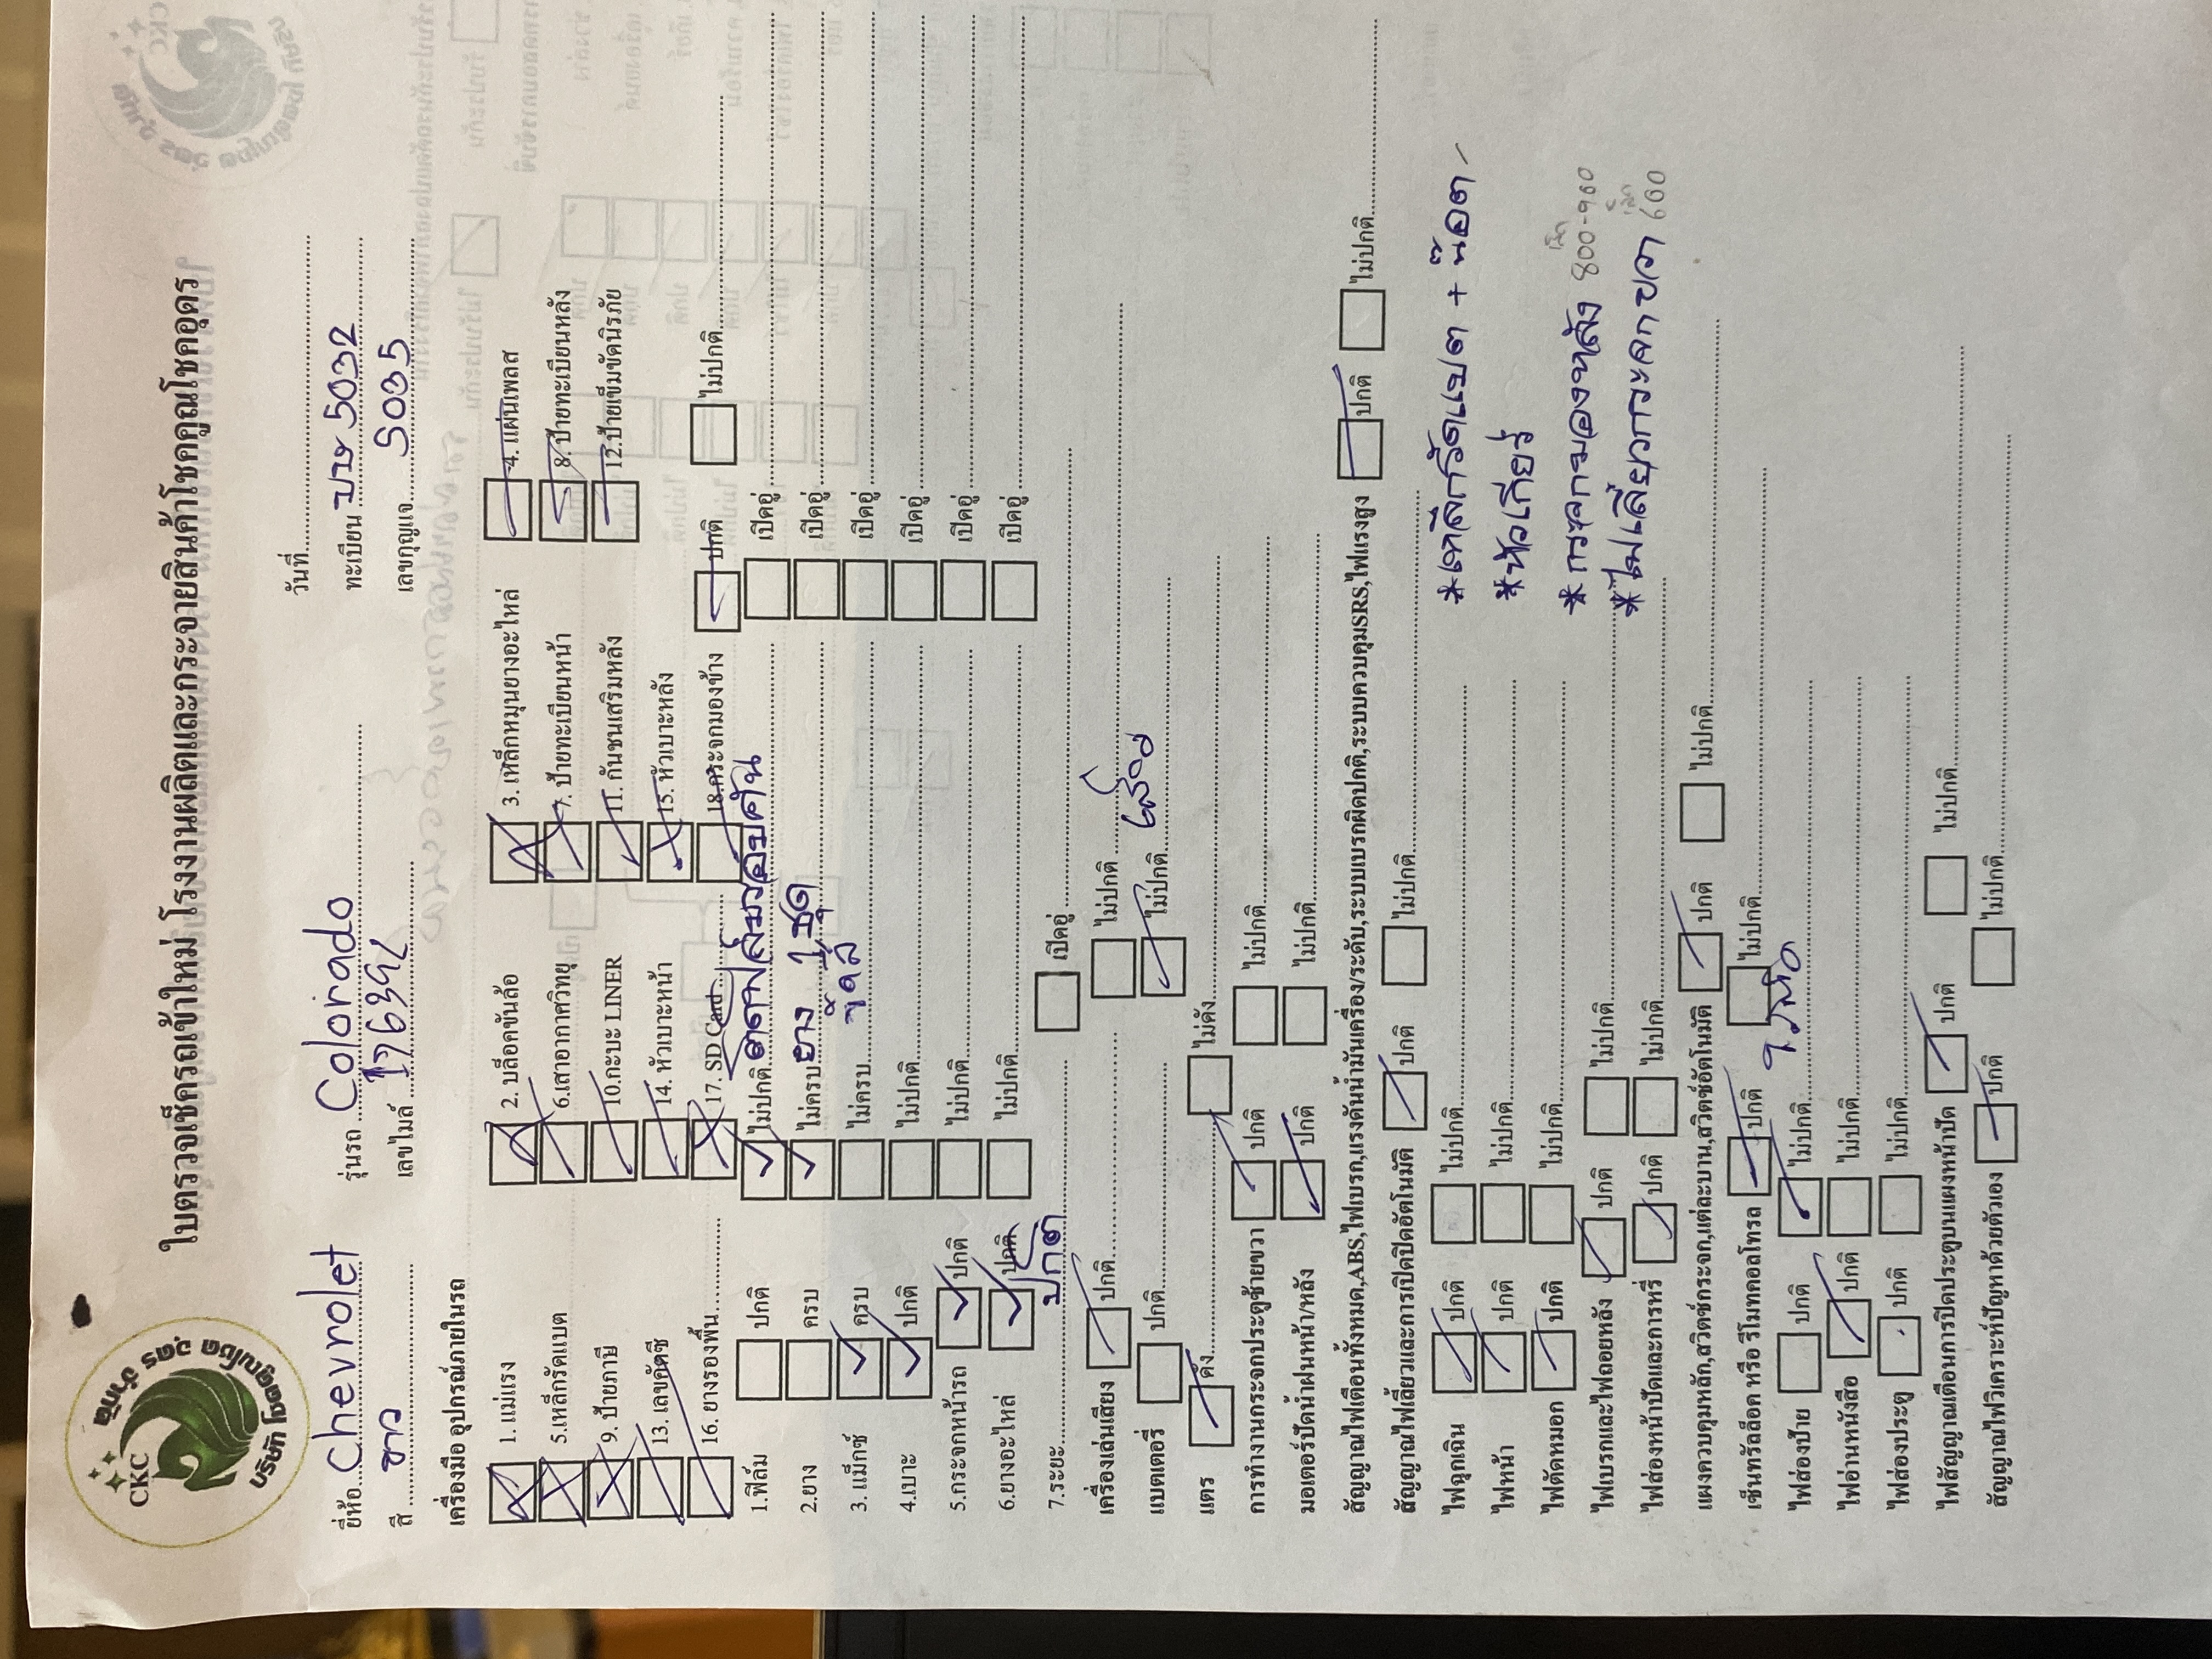 CKC
บริษัท โชคคูณโชค อุดร จำกัด
ใบตรวจเช็ครถเข้าใหม่ โรงงานผลิตและกระจายสินค้าโชคคูณโชคอุดร
วันที่
ยี่ห้อ Chevrolet รุ่นรถ Colorado ทะเบียน 5032
สี ขาว เลขไมล์ เลขกุญแจ 5035
เครื่องมือ อุปกรณ์ภายในรถ
1. แม่แรง 2. บล็อคขันล้อ 3. เหล็กหมุนยางอะไหล่ 4. แผ่นเพลส
5.เหล็กรัดแบต 6.เสาอากาศวิทยุ 7. ป้ายทะเบียนหน้า 8. ป้ายทะเบียนหลัง
9. ป้ายภาษี 10.กระบะ LINER 11. กันชนเสริมหลัง 12.ป้ายเข็มขัดนิรภัย
13. เลขคัตซี 14. หัวเบาะหน้า 15. หัวเบาะหลัง
16. ยางรองพื้น 17. SD Card 18.กระจกมองข้าง ปกติ ไม่ปกติ
1.ฟิล์ม ปกติ ไม่ปกติ เปิดอู่
2.ยาง ครบ ไม่ครบ ยาง 1 ชุด เปิดอู่
3. แม็กซ์ ครบ ไม่ครบ เปิดอู่
4.เบาะ ปกติ ไม่ปกติ เปิดอู่
5.กระจกหน้ารถ ปกติ ไม่ปกติ เปิดอู่
6.ยางอะไหล่ ปกติ ไม่ปกติ เปิดอู่
7.ระยะ ปกติ เปิดอู่
เครื่องเล่นเสียง ปกติ ไม่ปกติ
แบตเตอรี่ ปกติ ไม่ปกติ เสื่อม
แตร ดัง ไม่ดัง
การทำงานกระจกประตูซ้ายขวา ปกติ ไม่ปกติ
มอเตอร์ปัดน้ำฝนหน้า/หลัง ปกติ ไม่ปกติ
สัญญาณไฟเตือนทั้งหมด,ABS,ไฟเบรก,แรงดันน้ำมันเครื่อง/ระดับ,ระบบเบรกผิดปกติ,ระบบควบคุมSRS,ไฟแรงสูง ปกติ ไม่ปกติ
สัญญาณไฟเลี้ยวและการเปิดปิดอัตโนมัติ ปกติ ไม่ปกติ
ไฟฉุกเฉิน ปกติ ไม่ปกติ *เหล็กรัดแบต + น๊อต
ไฟหน้า ปกติ ไม่ปกติ *หัวเกียร์
ไฟตัดหมอก ปกติ ไม่ปกติ *กระจกมองหลัง 800-900
ไฟเบรกและไฟถอยหลัง ปกติ ไม่ปกติ *ไฟเลี้ยวกระจกขวา 600
ไฟส่องหน้าปัดและการหรี่ ปกติ ไม่ปกติ
แผงควบคุมหลัก,สวิตซ์กระจก,แต่ละบาน,สวิตซ์อัตโนมัติ ปกติ ไม่ปกติ
เซ็นทรัลล็อค หรือ รีโมทคอลโทรล ปกติ ไม่ปกติ
ไฟส่องป้าย ปกติ ไม่ปกติ
ไฟอ่านหนังสือ ปกติ ไม่ปกติ
ไฟส่องประตู ปกติ ไม่ปกติ
ไฟสัญญาณเตือนการปิดประตูบนแผงหน้าปัด ปกติ ไม่ปกติ
สัญญาณไฟวิเคราะห์ปัญหาด้วยตัวเอง ปกติ ไม่ปกติ